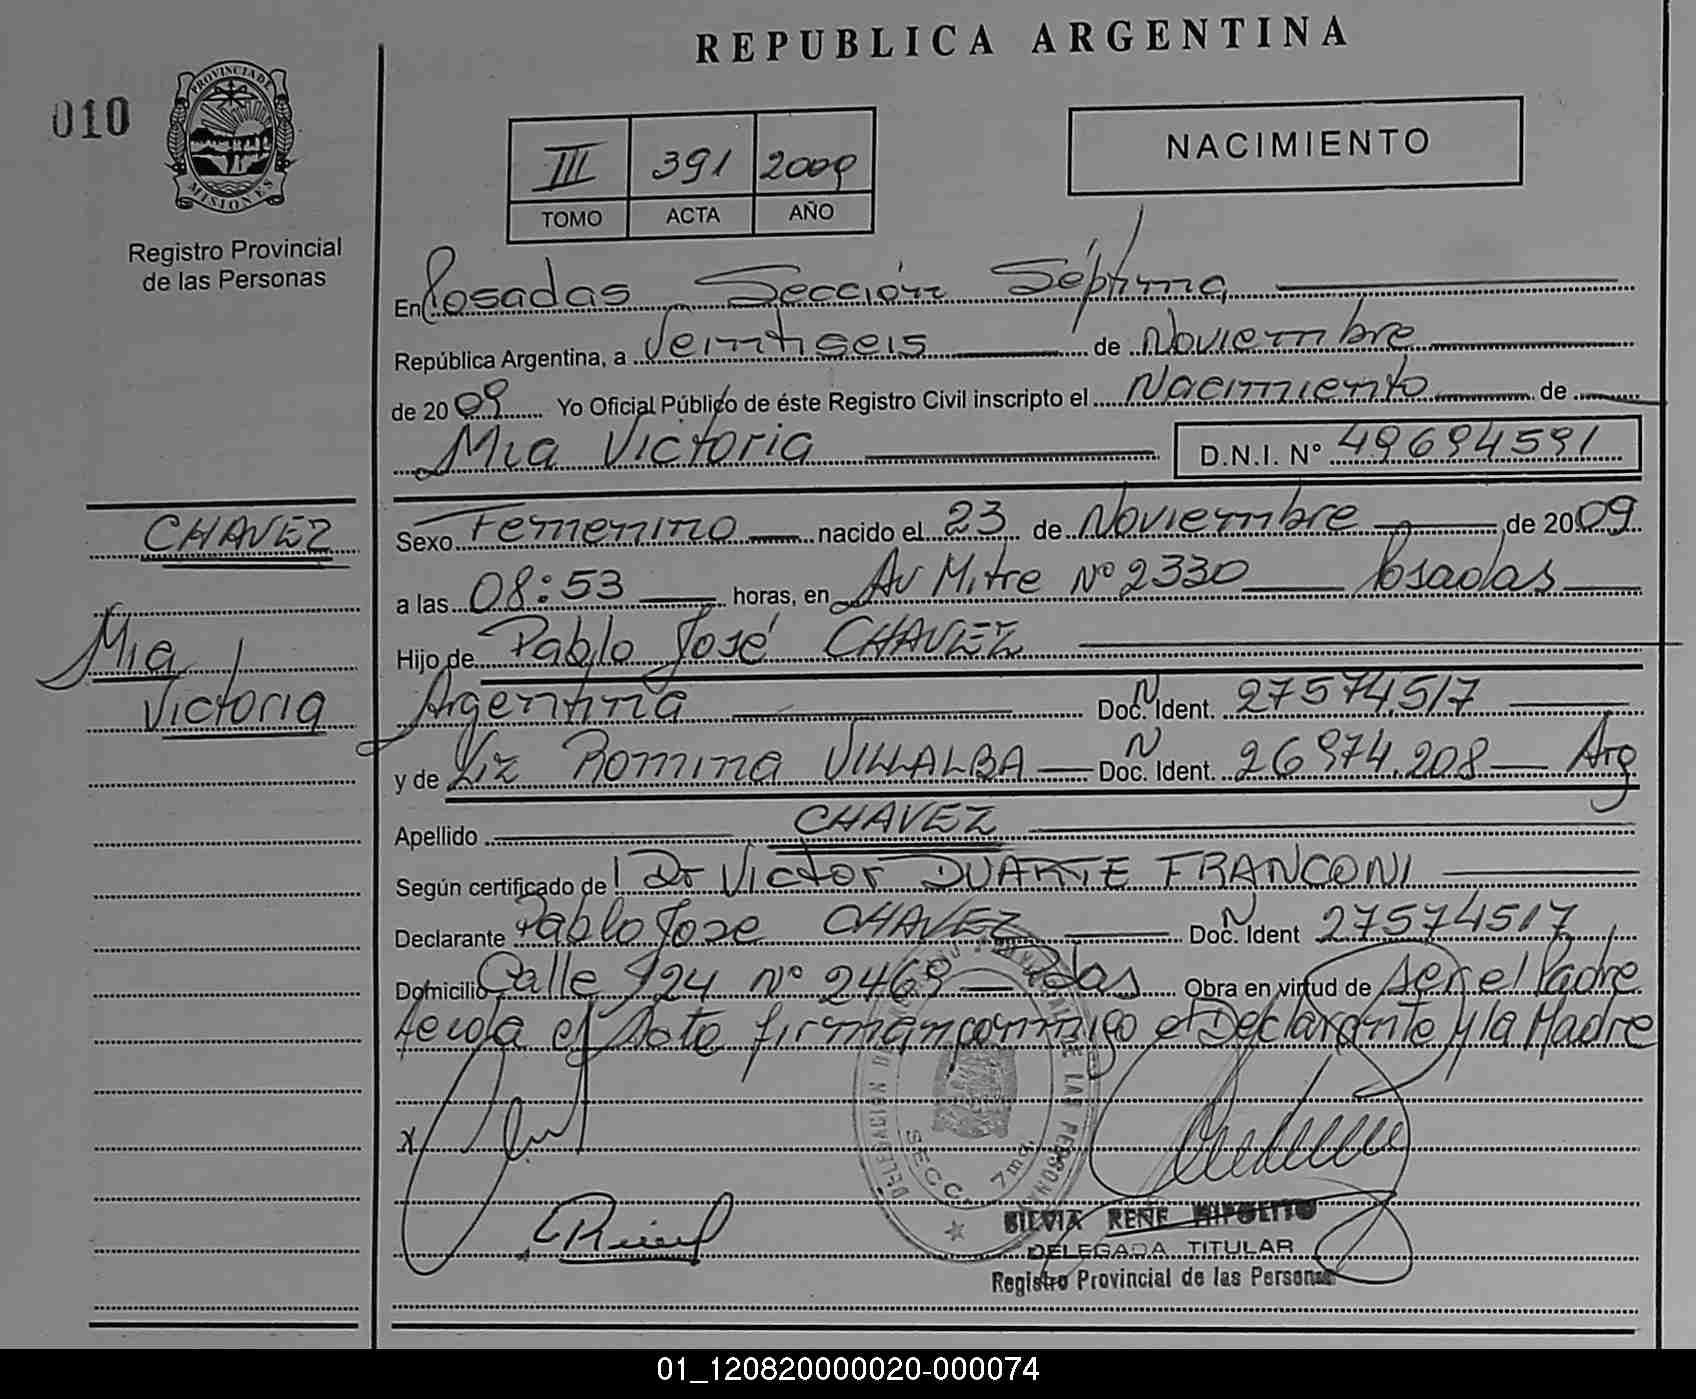 REPUBLICA ARGENTINA
010
PROVINCIA DE
MISIONES
Registro Provincial
de las Personas
III 391 2009
TOMO ACTA AÑO
NACIMIENTO
En Posadas Sección Séptima
República Argentina, a Veintiseis de Noviembre
de 2009 Yo Oficial Público de éste Registro Civil inscripto el Nacimiento de
Mia Victoria D.N.I. Nº 49694591
CHAVEZ
Mia
Victoria
Sexo Femenino nacido el 23 de Noviembre de 2009
a las 08:53 horas, en Av Mitre Nº 2330 Posadas
Hijo de Pablo José CHAVEZ
Argentina Doc. Ident. N 27574.517
y de Liz Romina VILLALBA Doc. Ident. N 26974.208 Arg
Apellido CHAVEZ
Según certificado de Dr Victor DUARTE FRANCONI
Declarante Pablo Jose CHAVEZ Doc. Ident N 27574517
Domicilio Calle 124 Nº 2469 Pdas Obra en virtud de ser el Padre
el Acta firman conmigo el Declarante y la Madre
x
DELEGACION DE LAS PERSONAS
SECC. 7ma.
SILVIA RENE HIPOLITO
DELEGADA TITULAR
Registro Provincial de las Personas
01_120820000020-000074